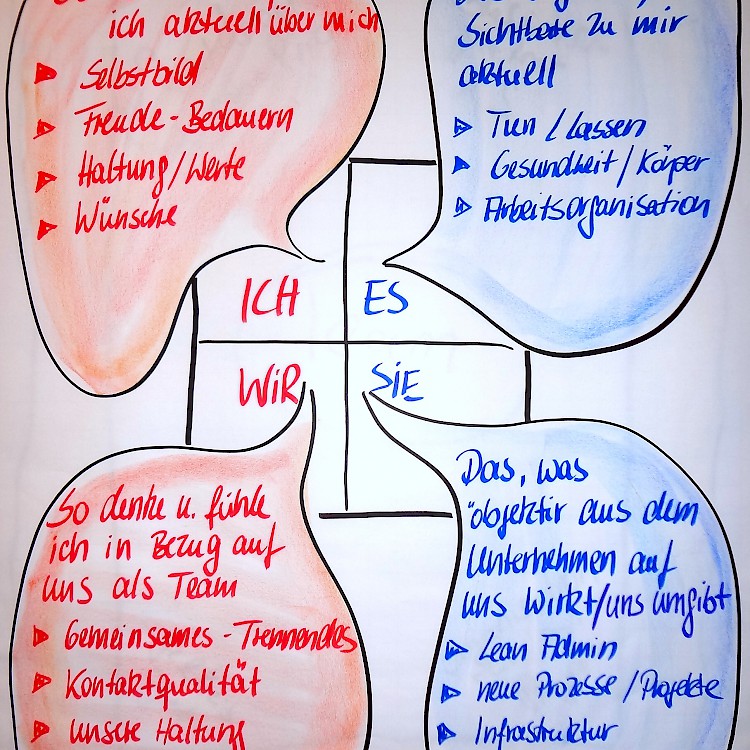 ich aktuell über mich
Selbstbild
Freude - Bedauern
Haltung/Werte
Wünsche
Sichtbare zu mir
aktuell
Tun / Lassen
Gesundheit / Körper
Arbeitsorganisation
ICH
ES
WIR
SIE
So denke u. fühle
ich in Bezug auf
uns als Team
Gemeinsames - Trennendes
Kontaktqualität
unsere Haltung
Das, was
"objektiv aus dem
Unternehmen auf
uns wirkt/uns umgibt
Lean Admin
neue Prozesse / Projekte
Infrastruktur